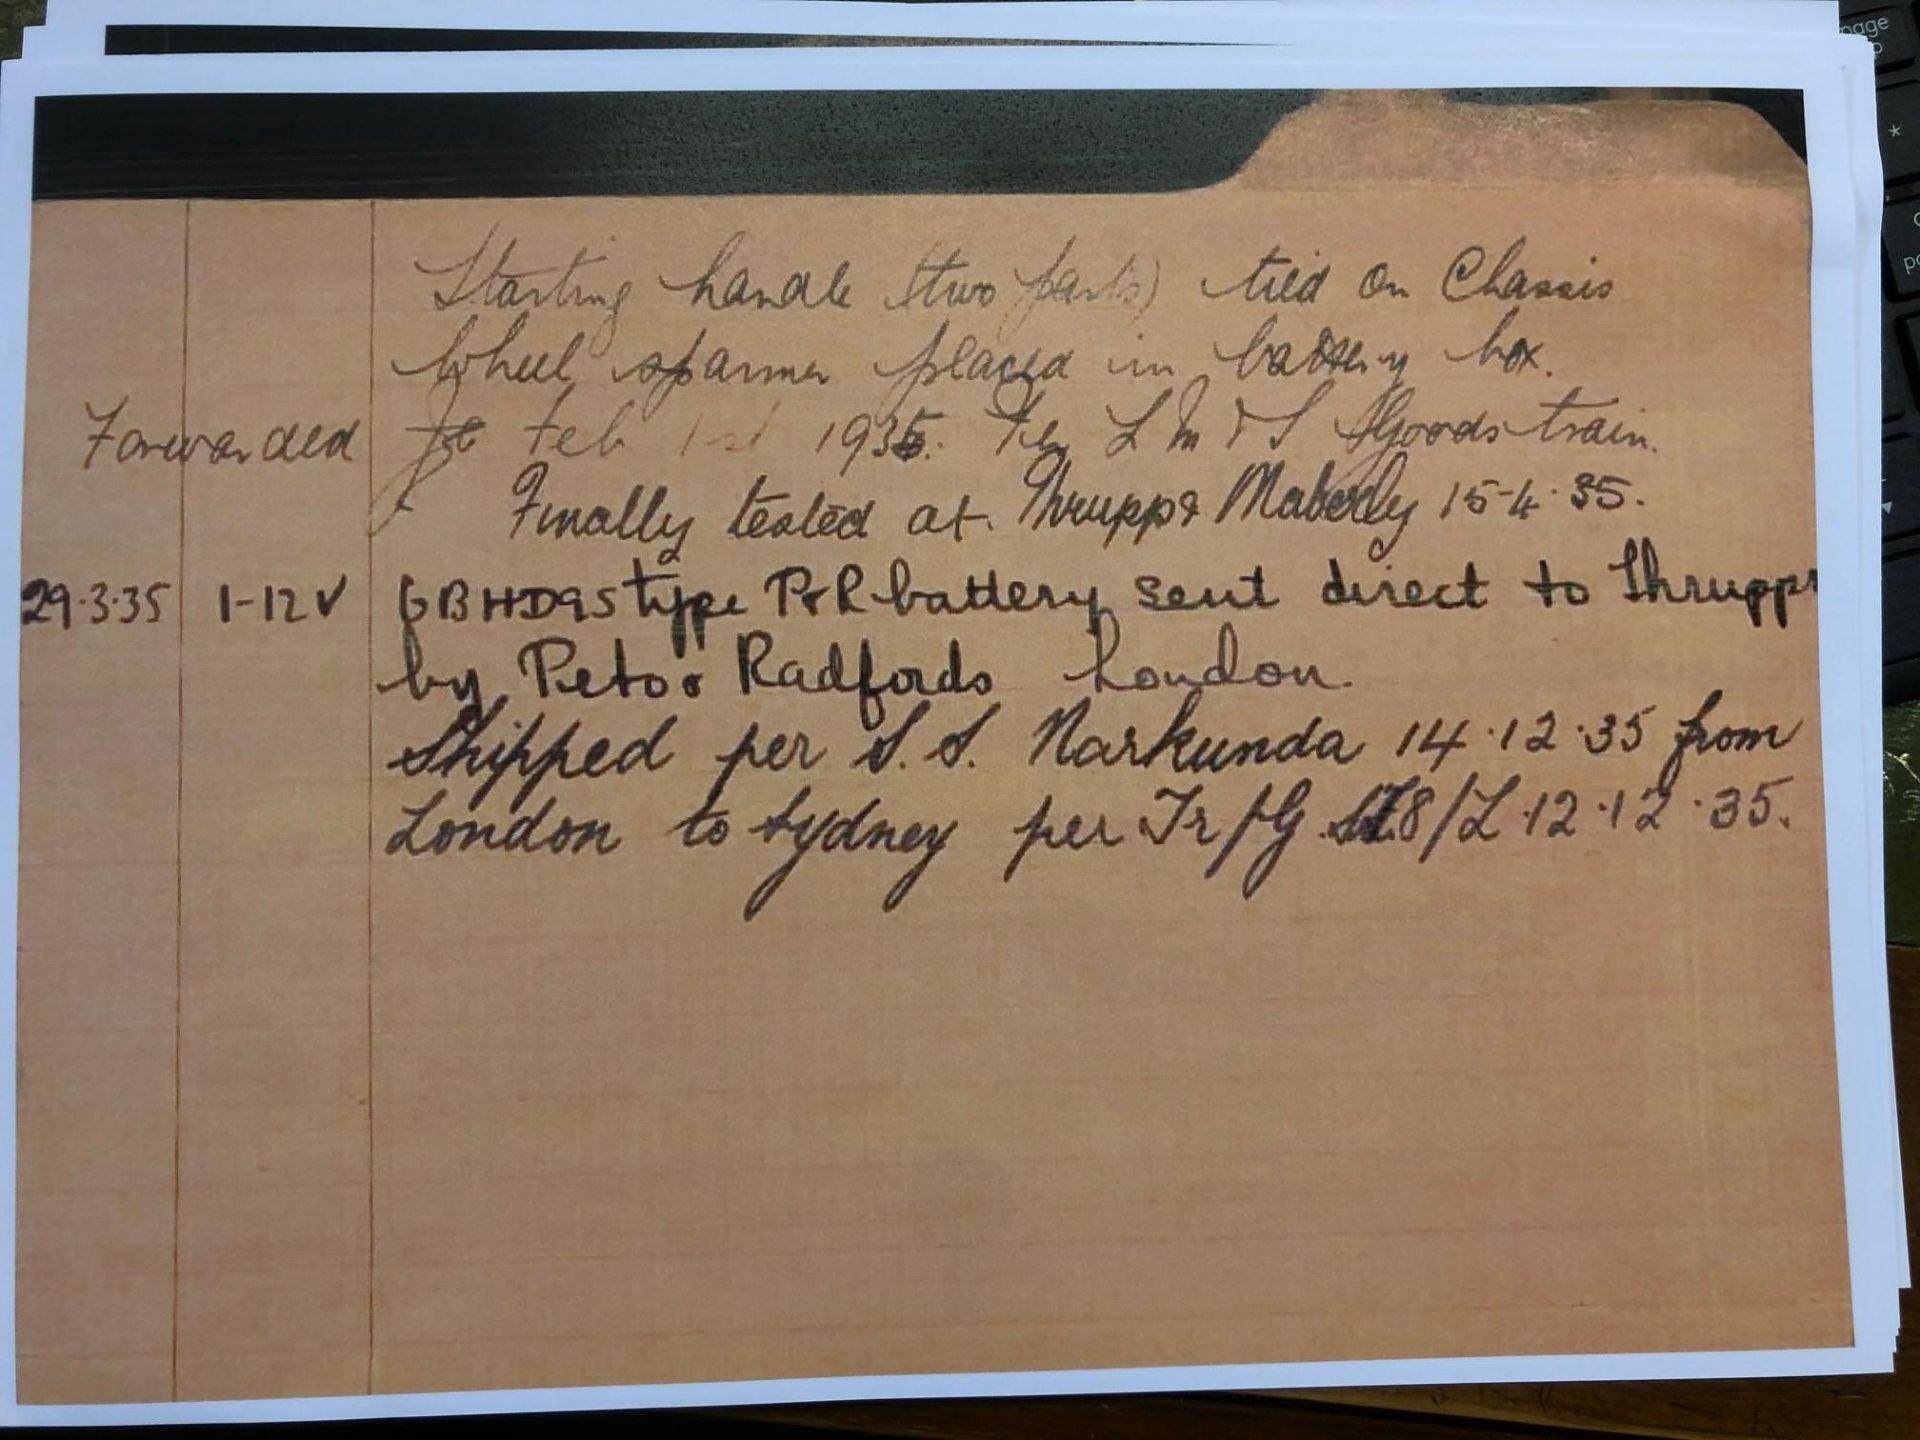 Starting handle (two parts) tied on Chassis
Wheel spanner placed in battery box.
Forwarded Feb 1st 1935. Per L M & S Goods train.
Finally tested at Thrupp & Maberly 15-4-35.
29.3.35 1-12V 6BHD9S type P&R battery sent direct to Thrupps
by Peto & Radfords London.
Shipped per S.S. Narkunda 14.12.35 from
London to Sydney per Tr/G /L 12.12.35.